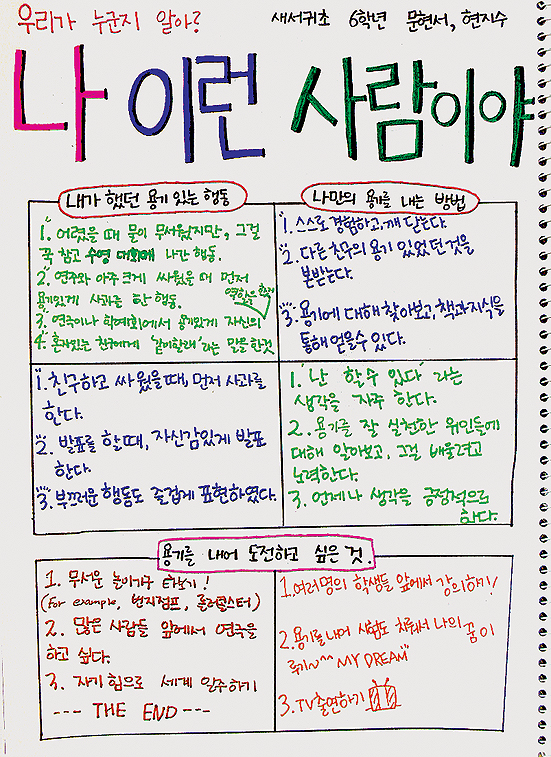 우리가 누군지 알아?
새서귀초 6학년 문현서, 현지수
나 이런 사람이야
내가 했던 용기 있는 행동
1. 어렸을 때 물이 무서웠지만, 그걸
꾹 참고 수영 대회에 나간 행동.
2. 연주와 아주 크게 싸웠을 때 먼저
용기있게 사과를 한 행동.
3. 연극이나 학예회에서 용기있게 자신의
역할을
4. 혼자있는 친구에게 '같이할래'라는 말을 한것
1. 친구하고 싸웠을때, 먼저 사과를
한다.
2. 발표를 할때, 자신감있게 발표
한다.
3. 부끄러운 행동도 즐겁게 표현하였다.
나만의 용기를 내는 방법
1. 스스로 경험하고, 깨닫는다.
2. 다른 친구의 용기 있었던 것을
본받는다.
3. 용기에 대해 찾아보고, 책과 지식을
통해 얻을수 있다.
1. '난 할수 있다' 라는
생각을 자주 한다.
2. 용기를 잘 실천한 위인들에
대해 알아보고, 그걸 배울려고
노력한다.
3. 언제나 생각을 긍정적으로
한다.
용기를 내어 도전하고 싶은 것.
1. 무서운 놀이기구 타기!
(for example, 번지점프, 롤러코스터)
2. 많은 사람들 앞에서 연극을
하고 싶다.
3. 자기 힘으로 세계 일주하기
--- THE END ---
1. 여러명의 학생들 앞에서 강의하기!
2. 용기를 내어 시험도 치뤄서 나의 꿈이
뤄기~^^ MY DREAM"
3. TV출연하기